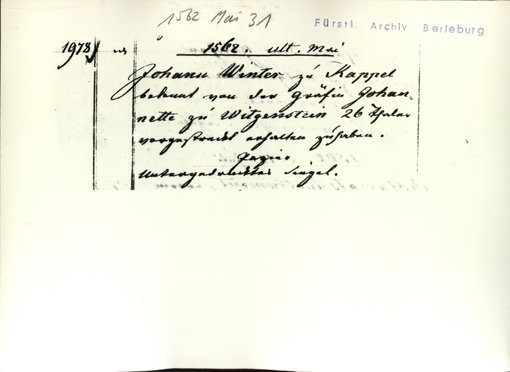 1562 Mai 31
Fürstl. Archiv Berleburg
1978
1562. ult. Mai
Johann Winter zu Kappel
bekennt von der Gräfin Johan-
nette zu Witgenstein 26 Thaler
vorgestreckt erhalten zuhaben.
Papier
Untergedrucktes Siegel.